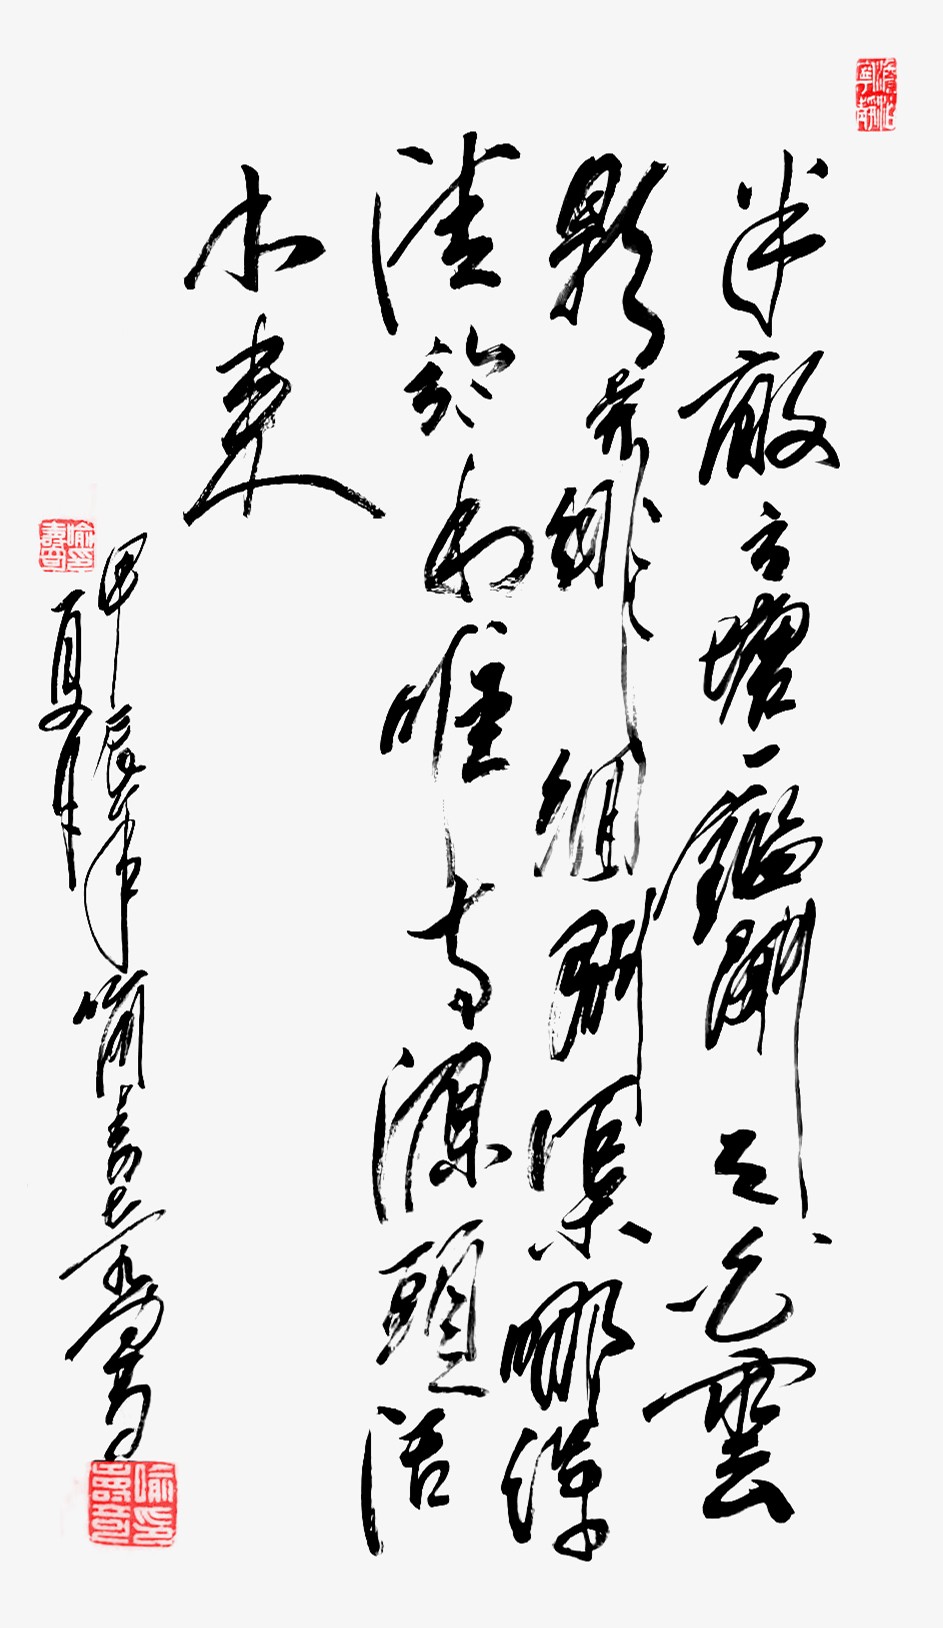 半畝方塘一鑑開天光雲
影共徘徊問渠哪得
清如許唯有源頭活
水来
甲辰年
夏月